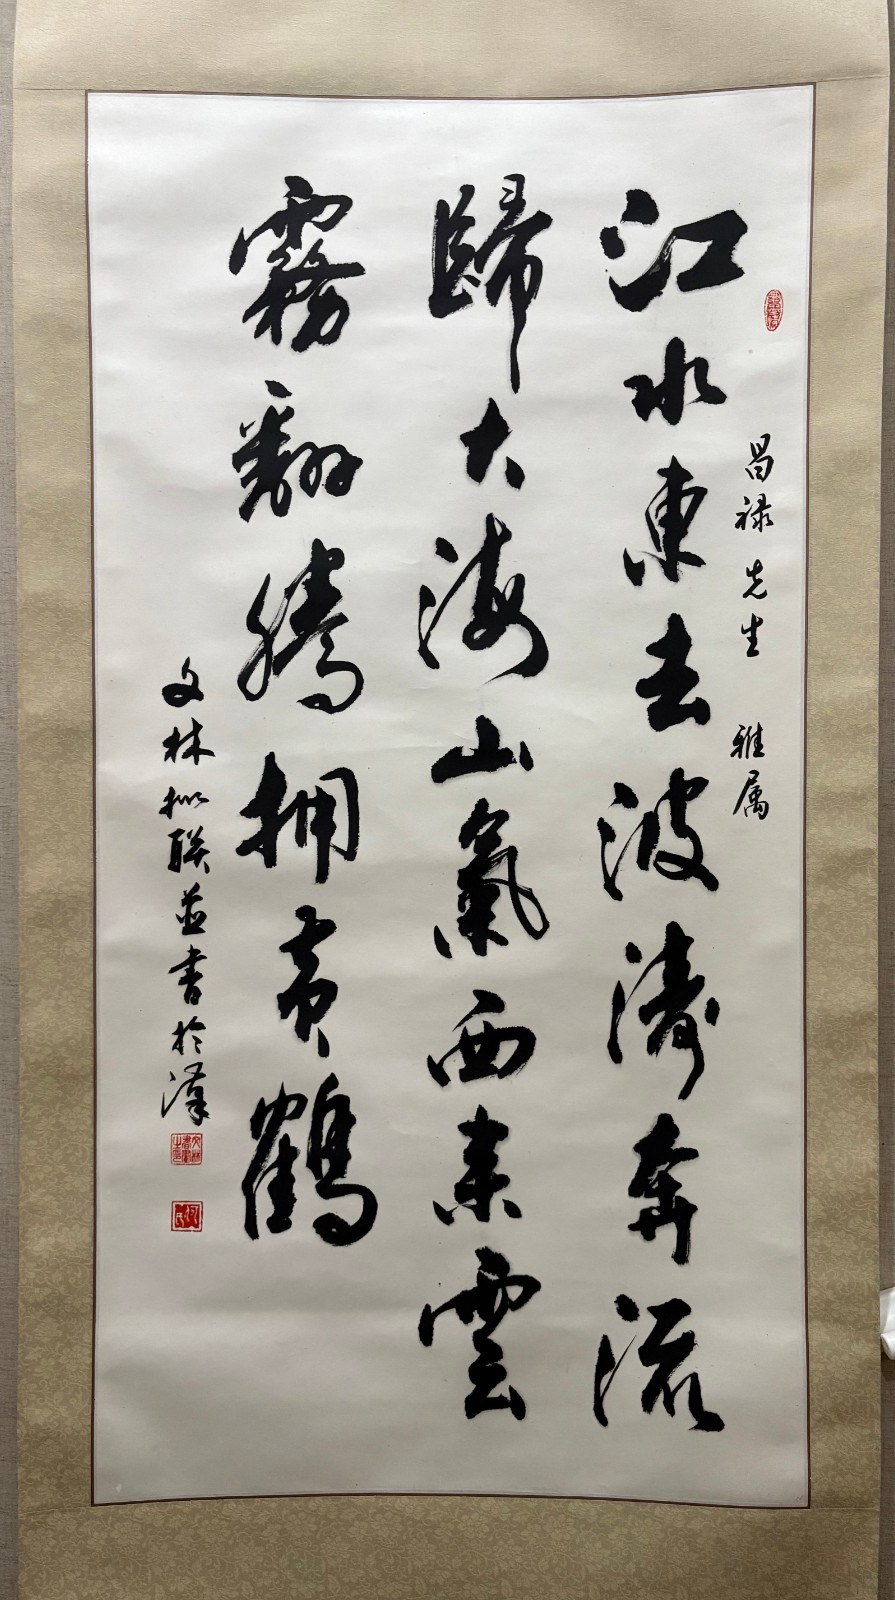 昌禄先生 雅属
江水東去波濤奔流
歸大海山氣西来雲
霧翻騰拥黄鶴
文林拟联並書於漢